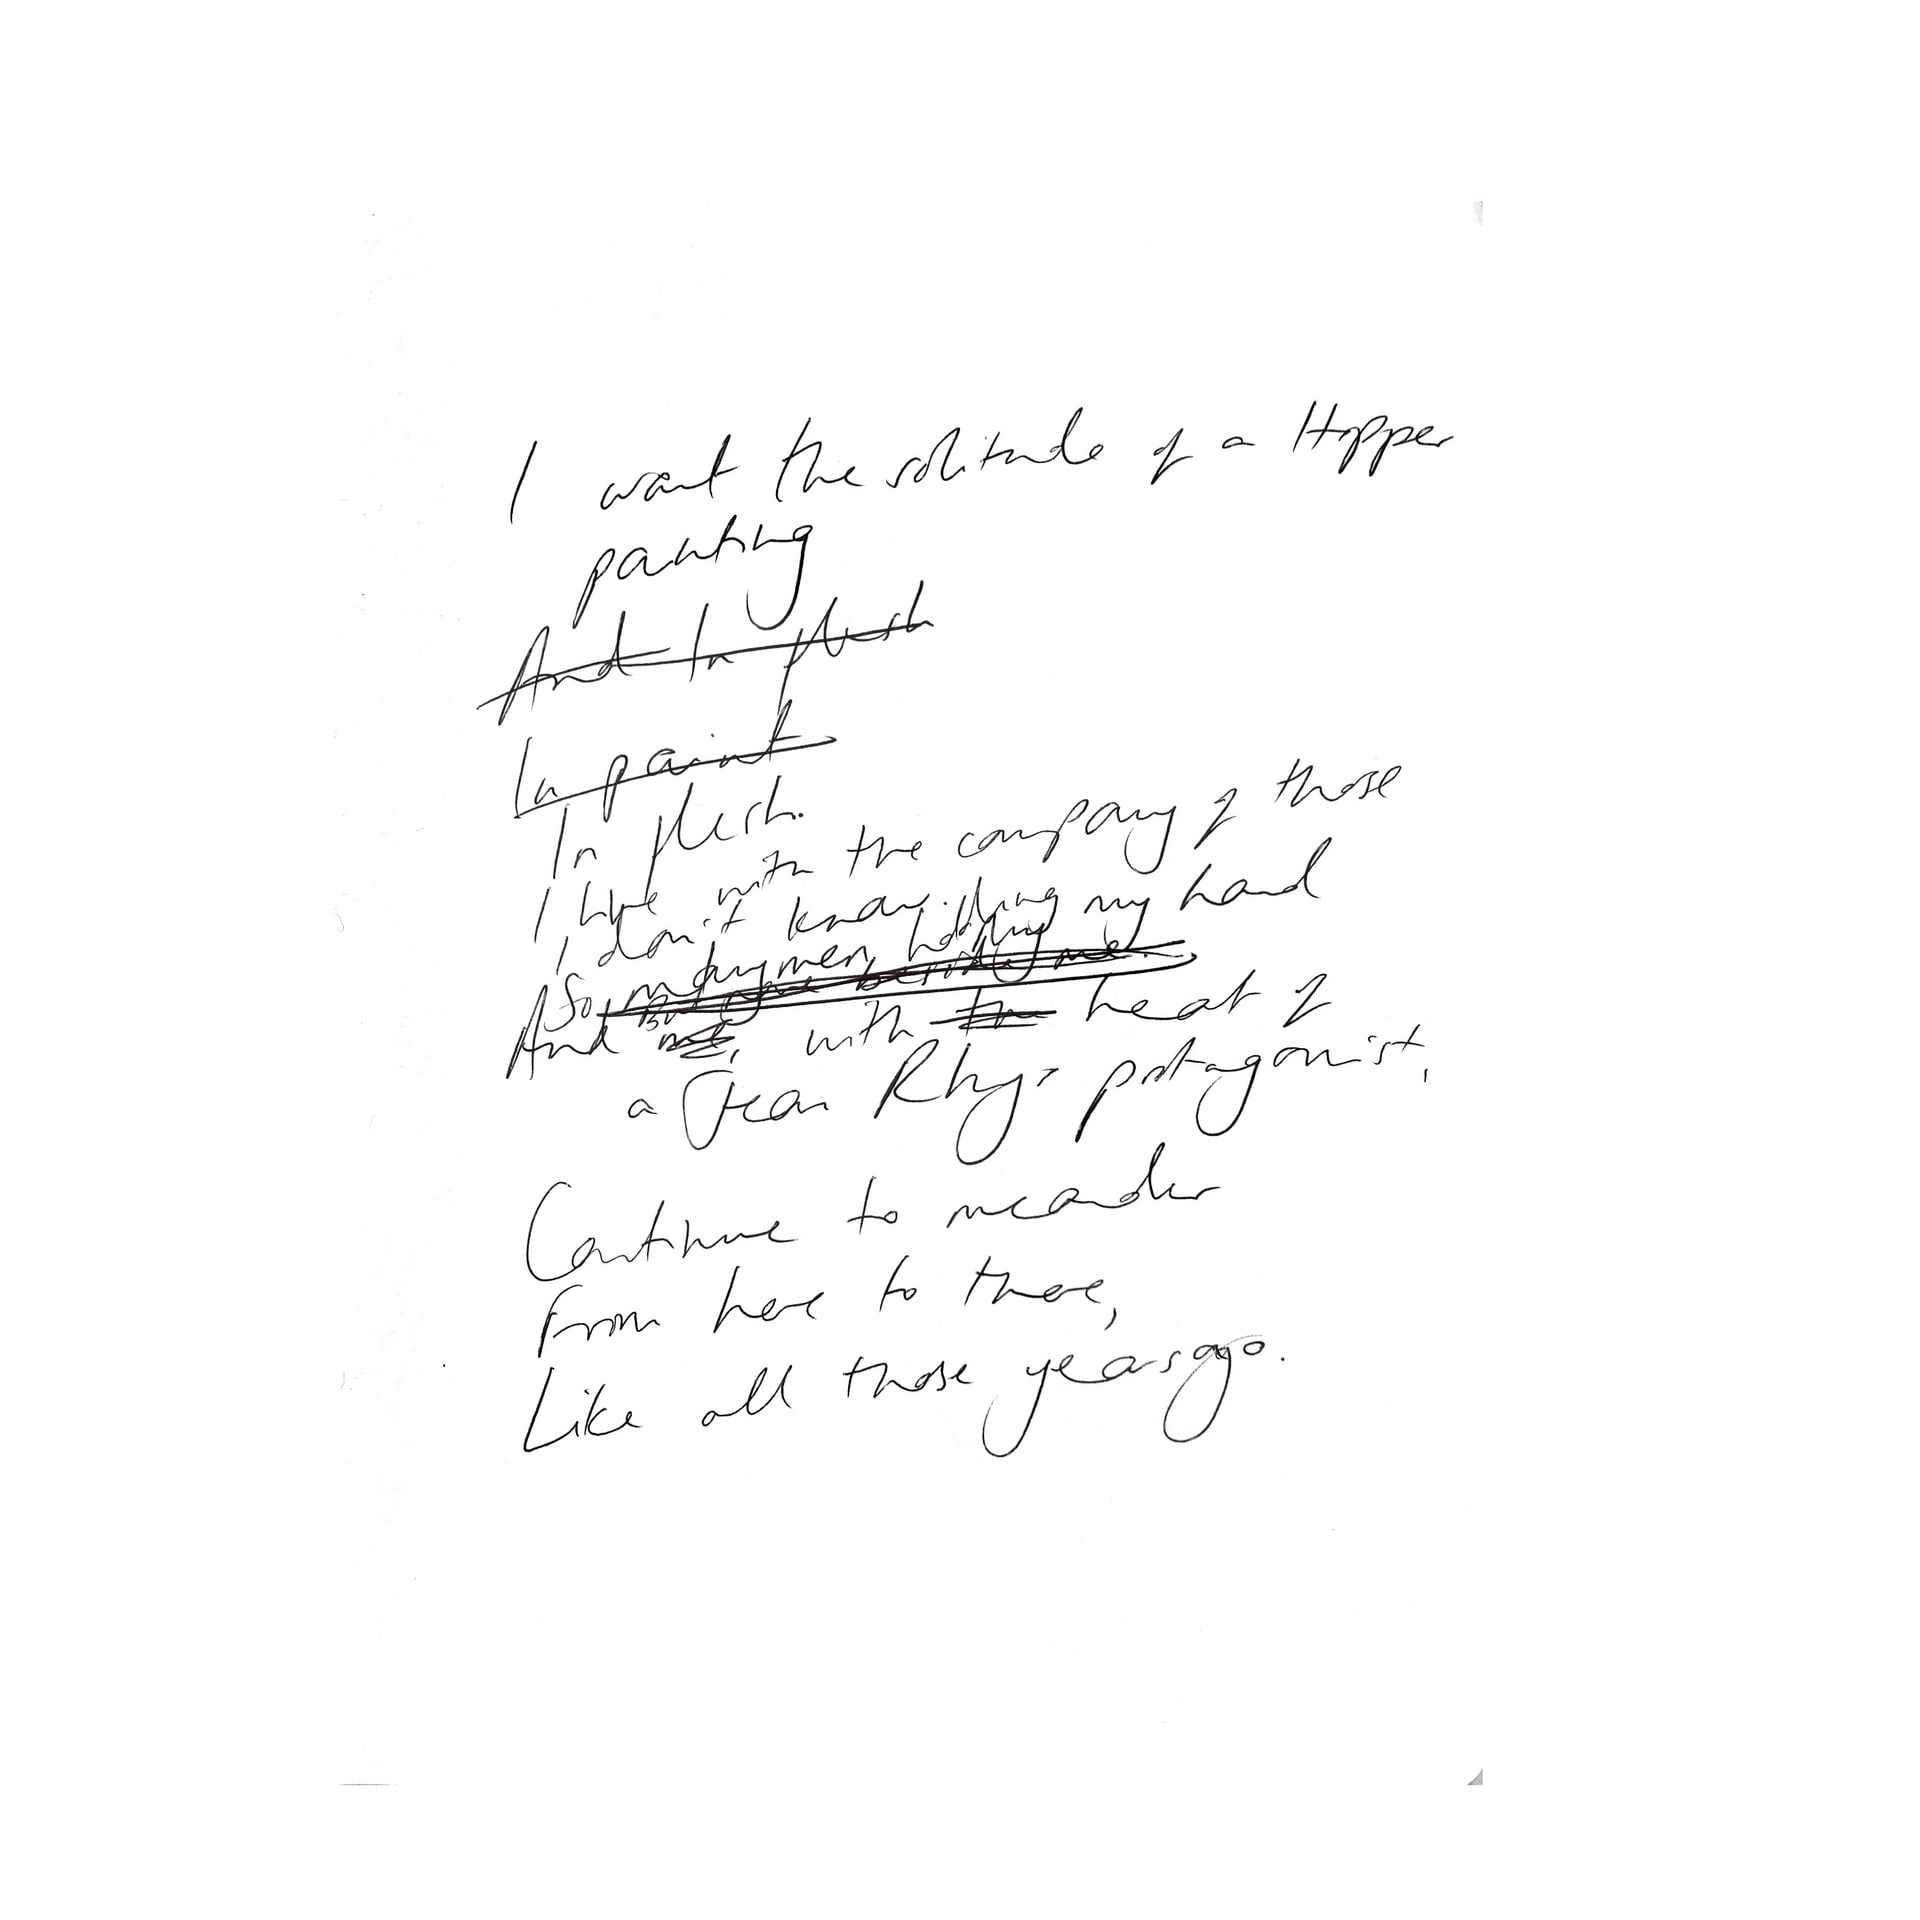 I want the solitude of a Hopper
painting
And In flesh
In paint
In flesh.
I live with the company of those
I don't know.
So many men holding my hand
And me, with the heat of
a Jean Rhys protagonist,
Continue to meander
From here to there,
Like all those years ago.